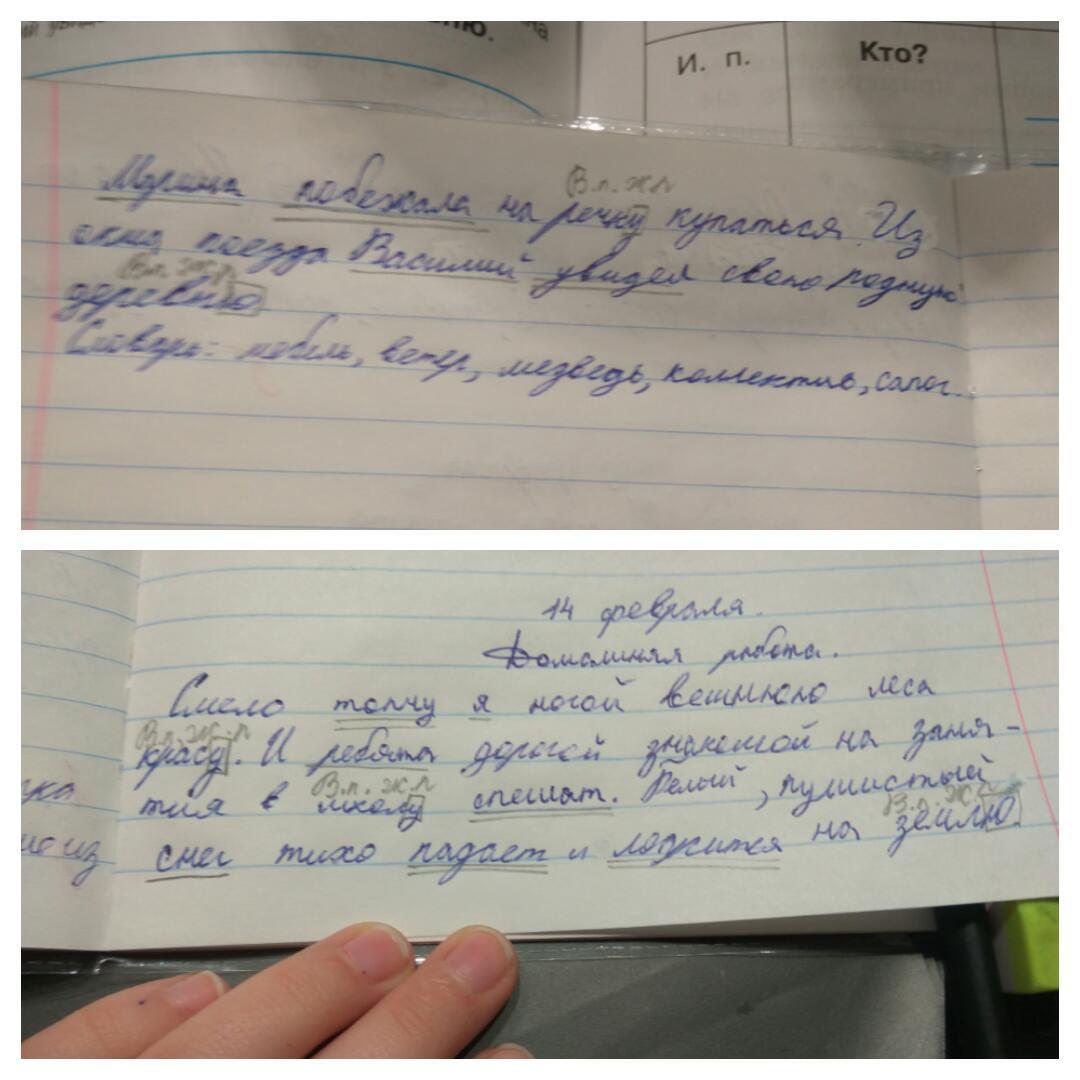 ню.
на
И. п.
Кто?
В.п. ж.р
Марина побежала на речку купаться. Из
окна поезда Василий увидел свою родную
В.п. ж.р
деревню
Словарь: мебель, ветер, медведь, коллектив, сапог.
14 февраля.
Домашняя работа.
Смело топчу я ногой вешнюю леса
В.п. ж.р
красу. И ребята дорогой знакомой на заня-
В.п. ж.р
тия в школу спешат. Белый, пушистый
В.п. ж.р
снег тихо падает и ложится на землю.